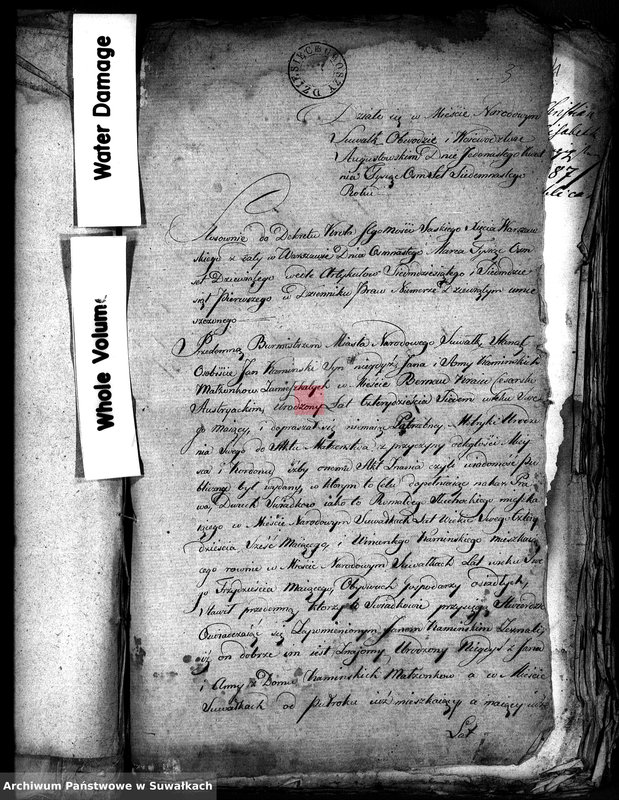 Water Damage
Whole Volume
DZIESIĘĆ GROSZY
3
Działo się w Mieście Narodowym
Suwałk Obwodzie i Woiewództwie
Augustowskim Dnia Jedenastego
nia Tysiąc Osm Set Siedemnastego
Roku
Stosownie do Dekretu Króla Jego Mości Saskiego Xięcia Warszaw
skiego z Daty w Warszawie Dnia Osmnastego Marca Tysiąc Osm
set Dziewiątego wedle Artykułów Siedmdziesiątego i Siedmdzie
siąt Pierwszego w Dzienniku Praw Numerze Dziewiątym umie
szczonego
Przedemną Burmistrzem Miasta Narodowego Suwałk, Stanął
Osobiście Jan Kaminski Syn niegdyś Jana i Anny Kaminskich
Małżonków Zamieszkałych w Mieście Kraiu Cesarsko
Austryackim, urodzony Lat Czterydzieścia Siedem wieku Swe
go maiący, i dopraszał się niemaiąc Potrzebney Metryki Urodze
nia Swego do Aktu Małżenstwa z przyczyny odległości Miey
sca i Kordonu, iżby onemu Akt Znania czyli wiadomości Pu
bliczney był wydany, w którym to Celu dopełniaiąc nakaz Pra
wa, Dwóch Swiadków iako to mieszka
iącego w Mieście Narodowym Suwałkach Lat Wieku Swego Cztery
dzieścia Sześć Maiącego, i Wincentego Kaminskiego mieszkaią
cego rownie w Mieście Narodowym Suwałkach Lat wieku Swe
go Trzydzieścia maiącego, Obydwóch gospodarzy osiadłych,
stawił przedemną którzy to Swiadkowie przysięgą stwierdza
Oświadczaiąc się Zapomnionym Janem Kamińskim Zeznali,
iż on dobrze im iest Znaiomy Urodzony Niegdyś z Jana
i Anny z Domu Kaminskich Małżonków a w Mieście
Suwałkach od puł roku iuż mieszkaiący a maiący
Lat
Archiwum Państwowe w Suwałkach